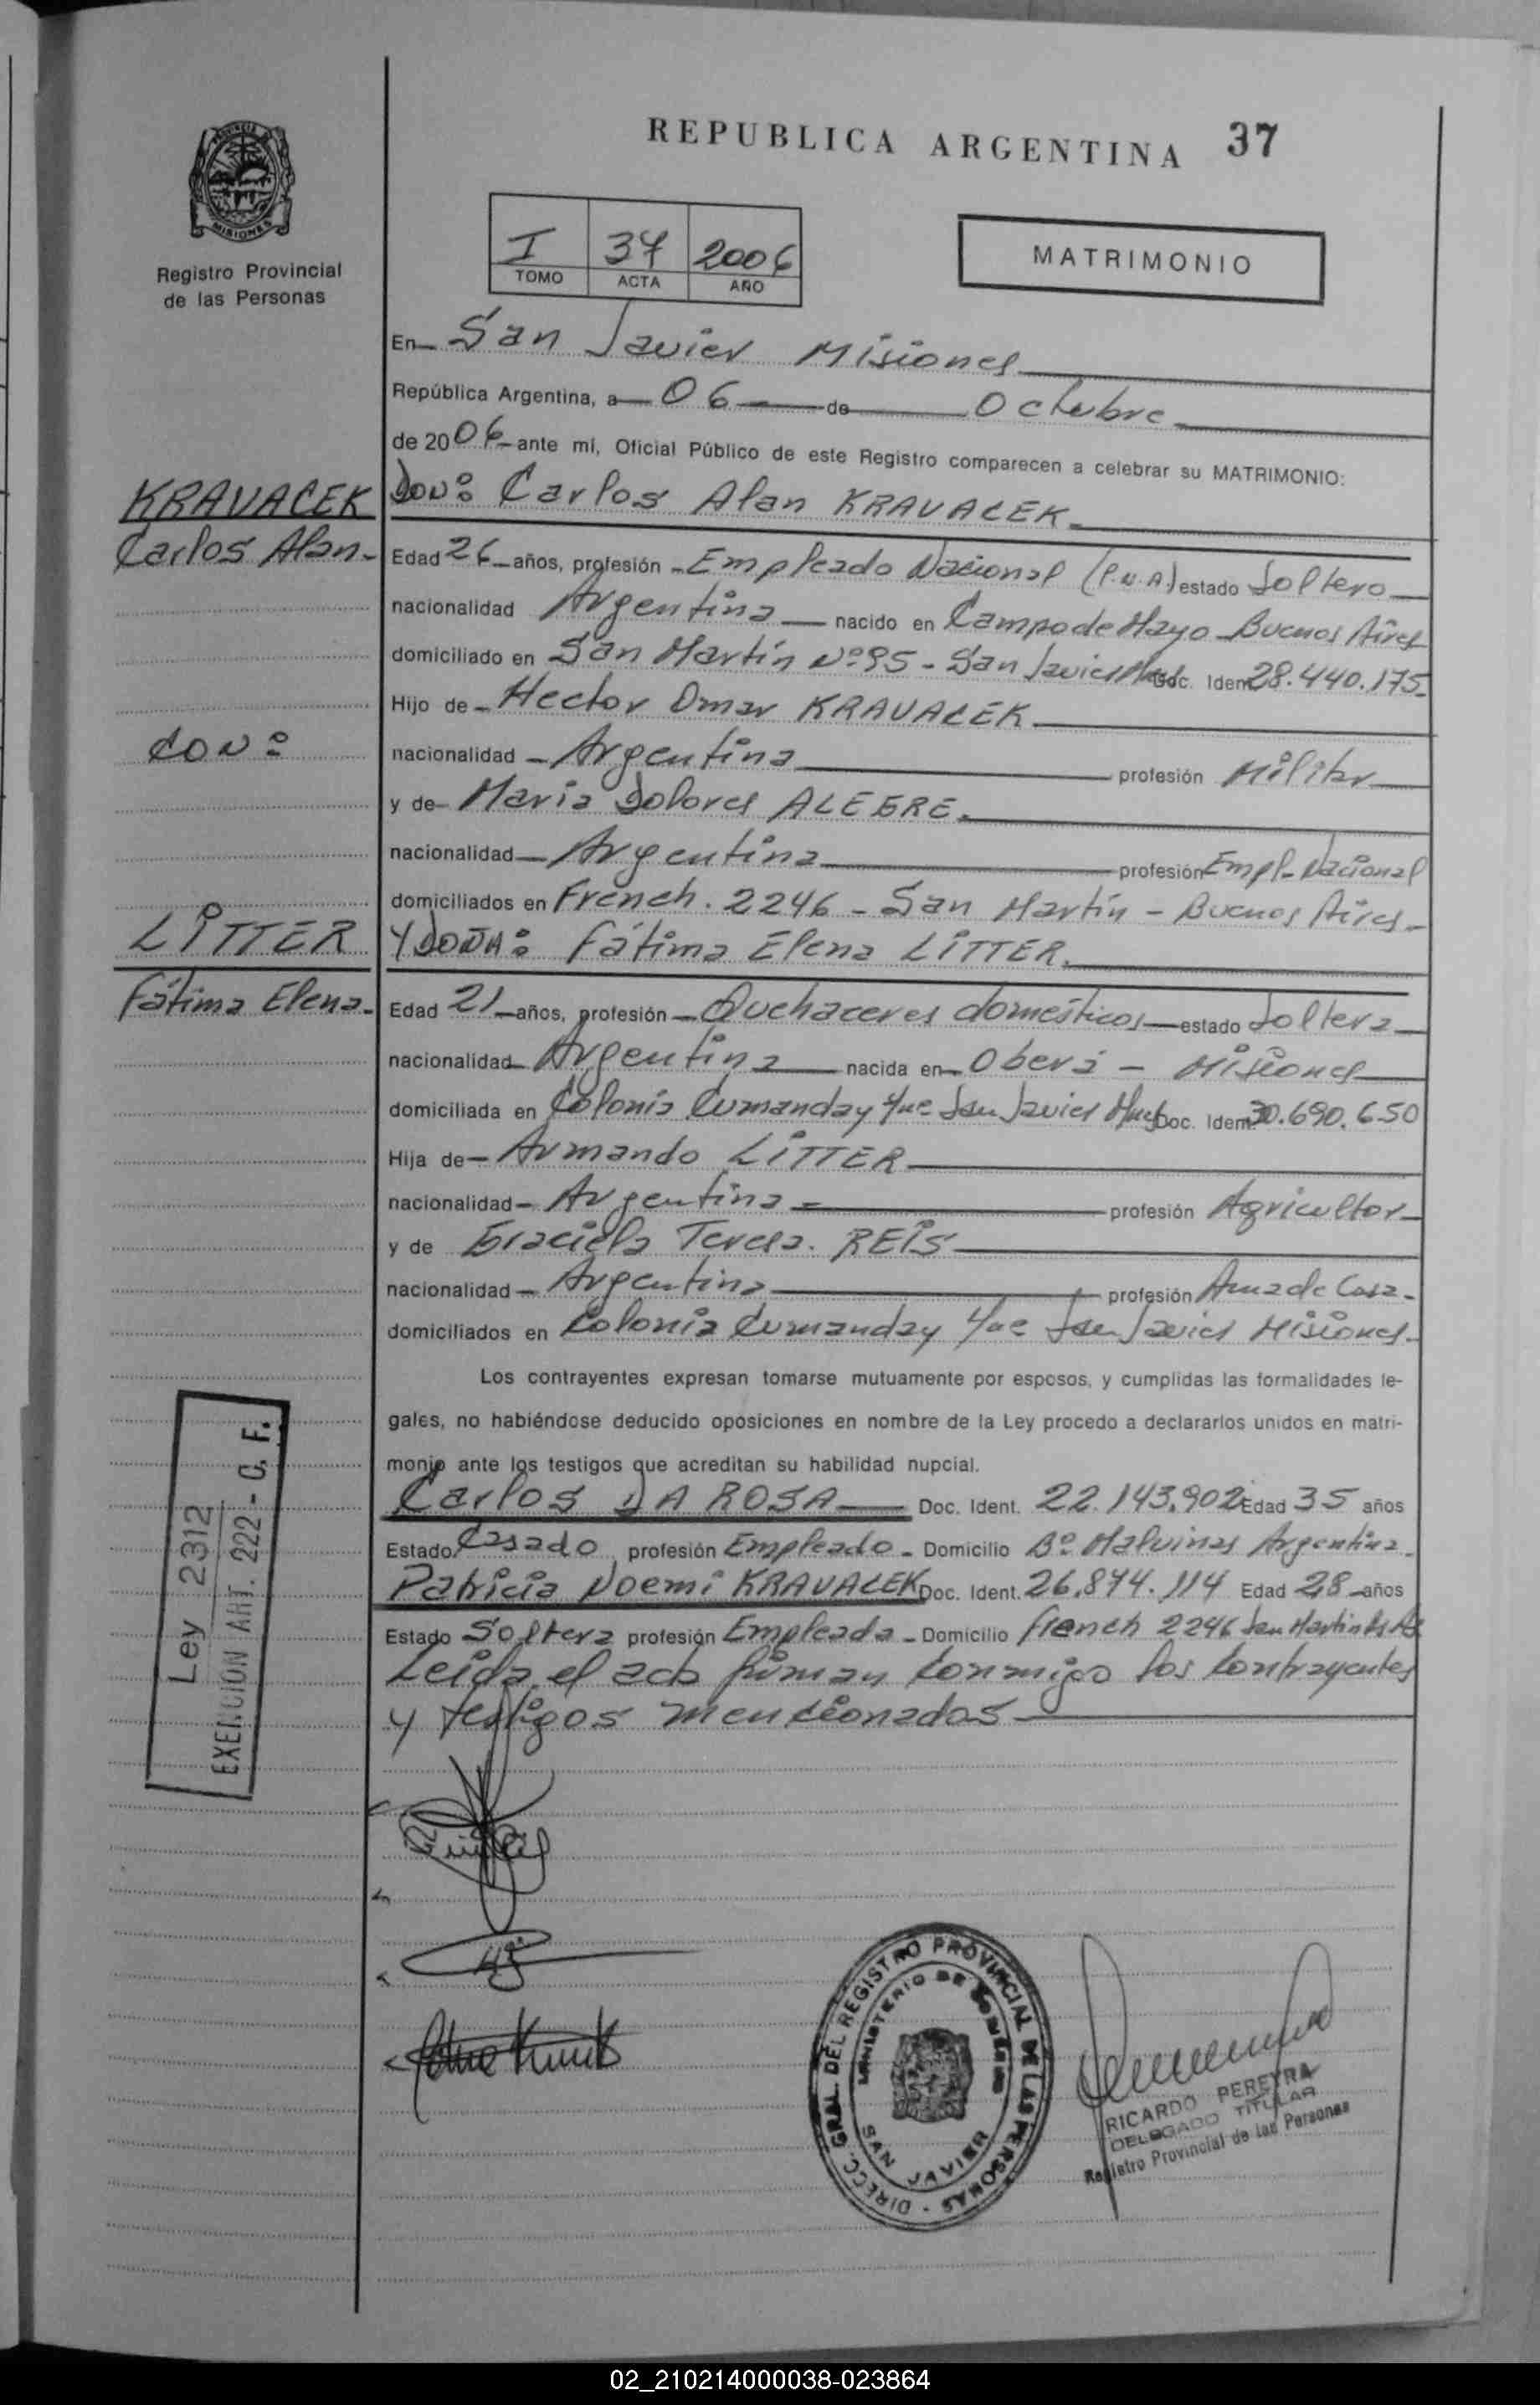 REPUBLICA ARGENTINA 37
MISIONES
Registro Provincial
de las Personas
I 37 2006
TOMO ACTA AÑO
MATRIMONIO
En San Javier Misiones
República Argentina, a 06 de Octubre
de 2006 ante mí, Oficial Público de este Registro comparecen a celebrar su MATRIMONIO:
KRAVACEK
Carlos Alan
DON: Carlos Alan KRAVACEK
Edad 26 años, profesión Empleado Nacional (P.N.A) estado Soltero
nacionalidad Argentina nacido en Campo de Mayo Buenos Aires
domiciliado en San Martín Nº 95 - San Javier Doc. Iden 28.440.175
Hijo de Hector Omar KRAVACEK
CON:
nacionalidad Argentina profesión Militar
y de Maria Dolores ALEGRE
nacionalidad Argentina profesión Empl. Nacional
domiciliados en French. 2246 - San Martín - Buenos Aires
LITTER
Fátima Elena
Y DOÑA: Fátima Elena LITTER
Edad 21 años, profesión Quehaceres domésticos estado Soltera
nacionalidad Argentina nacida en Oberá - Misiones
domiciliada en Colonia Cumanday San Javier Doc. Iden 30.690.650
Hija de Armando LITTER
nacionalidad Argentina profesión Agricultor
y de Graciela Teresa. REIS
nacionalidad Argentina profesión Ama de Casa
domiciliados en Colonia Cumanday San Javier Misiones
Los contrayentes expresan tomarse mutuamente por esposos, y cumplidas las formalidades le-
gales, no habiéndose deducido oposiciones en nombre de la Ley procedo a declararlos unidos en matri-
monio ante los testigos que acreditan su habilidad nupcial.
Carlos DA ROSA Doc. Ident. 22.143.902 Edad 35 años
Estado Casado profesión Empleado Domicilio Bº Malvinas Argentina
Patricia Noemi KRAVACEK Doc. Ident. 26.874.114 Edad 28 años
Estado Soltera profesión Empleada Domicilio French 2246 San Martin Bs As
Leida el acta firman conmigo los contrayentes
y testigos mencionados
Ley 2312
EXENCION ART. 222 - C. F.
DIRECC. GRAL. DEL REGISTRO PROVINCIAL DE LAS PERSONAS
MINISTERIO DE GOBIERNO
SAN JAVIER
RICARDO PEREYRA
DELEGADO TITULAR
Registro Provincial de las Personas
02_210214000038-023864